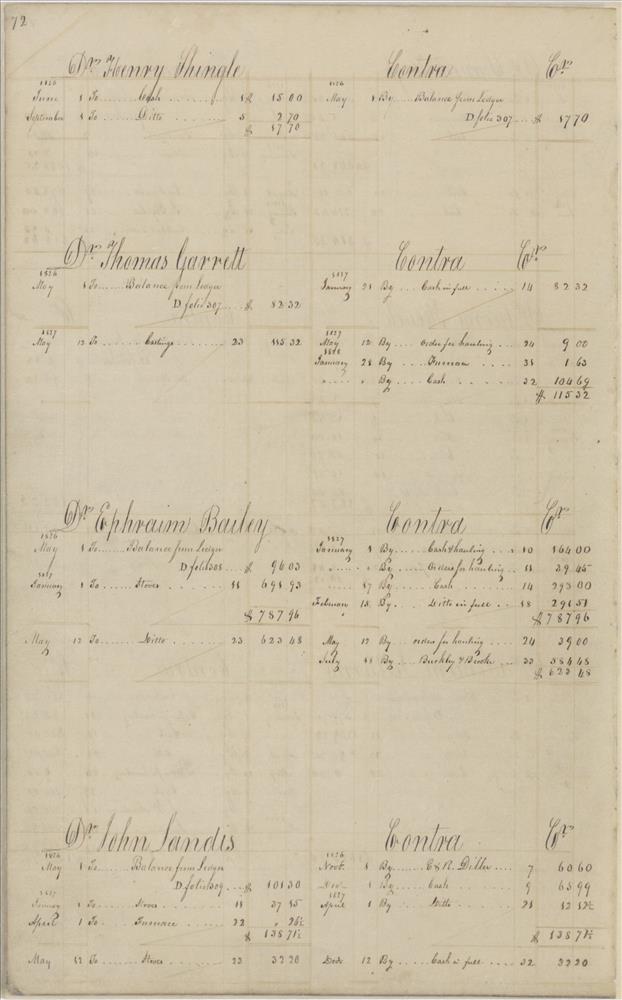 72
Dr. Henry Shingle Contra Cr.
1826 1826
June 1 To .... Cash ........ 1 $ 15 00 May 1 By .... Balance from Ledger
September 1 To .... Ditto ....... 5 2 70 D folio 307 .... $ 17 70
$ 17 70
Dr. Thomas Garrett Contra Cr.
1826 1827
May 1 To ...... Balance from Ledger January 21 By .... Cash in full ..... 14 82 32
D folio 307 .... $ 82 32
1827 1827
May 12 To ..... Castings ...... 23 115 32 May 12 By .... order for hauling .. 24 9 00
1828
January 28 By .... Furnace .... 31 1 63
" ..... " By .... Cash ...... 32 104 69
$ 115 32
Dr. Ephraim Bailey Contra Cr.
1826 1827
May 1 To ...... Balance from Ledger January 1 By .... Cash & hauling ... 10 164 00
D folio 308 .. $ 96 03 " ..... " By .... Orders for hauling .. 11 39 45
1827
January 1 To .... Stoves ...... 11 691 93 " ..... 17 By .... Cash ..... 14 293 00
February 15 By .... Ditto in full .. 18 291 51
$ 787 96 $ 787 96
May 12 To ..... Ditto ....... 23 623 48 May 12 By ... orders for hauling .... 24 39 00
July 11 By .... Buckley & Brooke ... 23 584 48
$ 623 48
Dr. John Landis Contra Cr.
1826 1826
May 1 To ...... Balance from Ledger Novr. 1 By ..... C & R. Diller ... 7 60 60
D folio 309 ... $ 101 30 Decr. 1 By .... Cash ..... 9 65 99
1827 1827
January 1 To ..... Stoves ....... 11 37 15 April 1 By ..... Ditto ..... 21 12 12½
April 1 To .... Furnace .... 22 " 26½
$ 138 71½ $ 138 71½
May 12 To ...... Stoves ..... 23 32 20 Decr 12 By ..... Cash in full .... 32 32 20